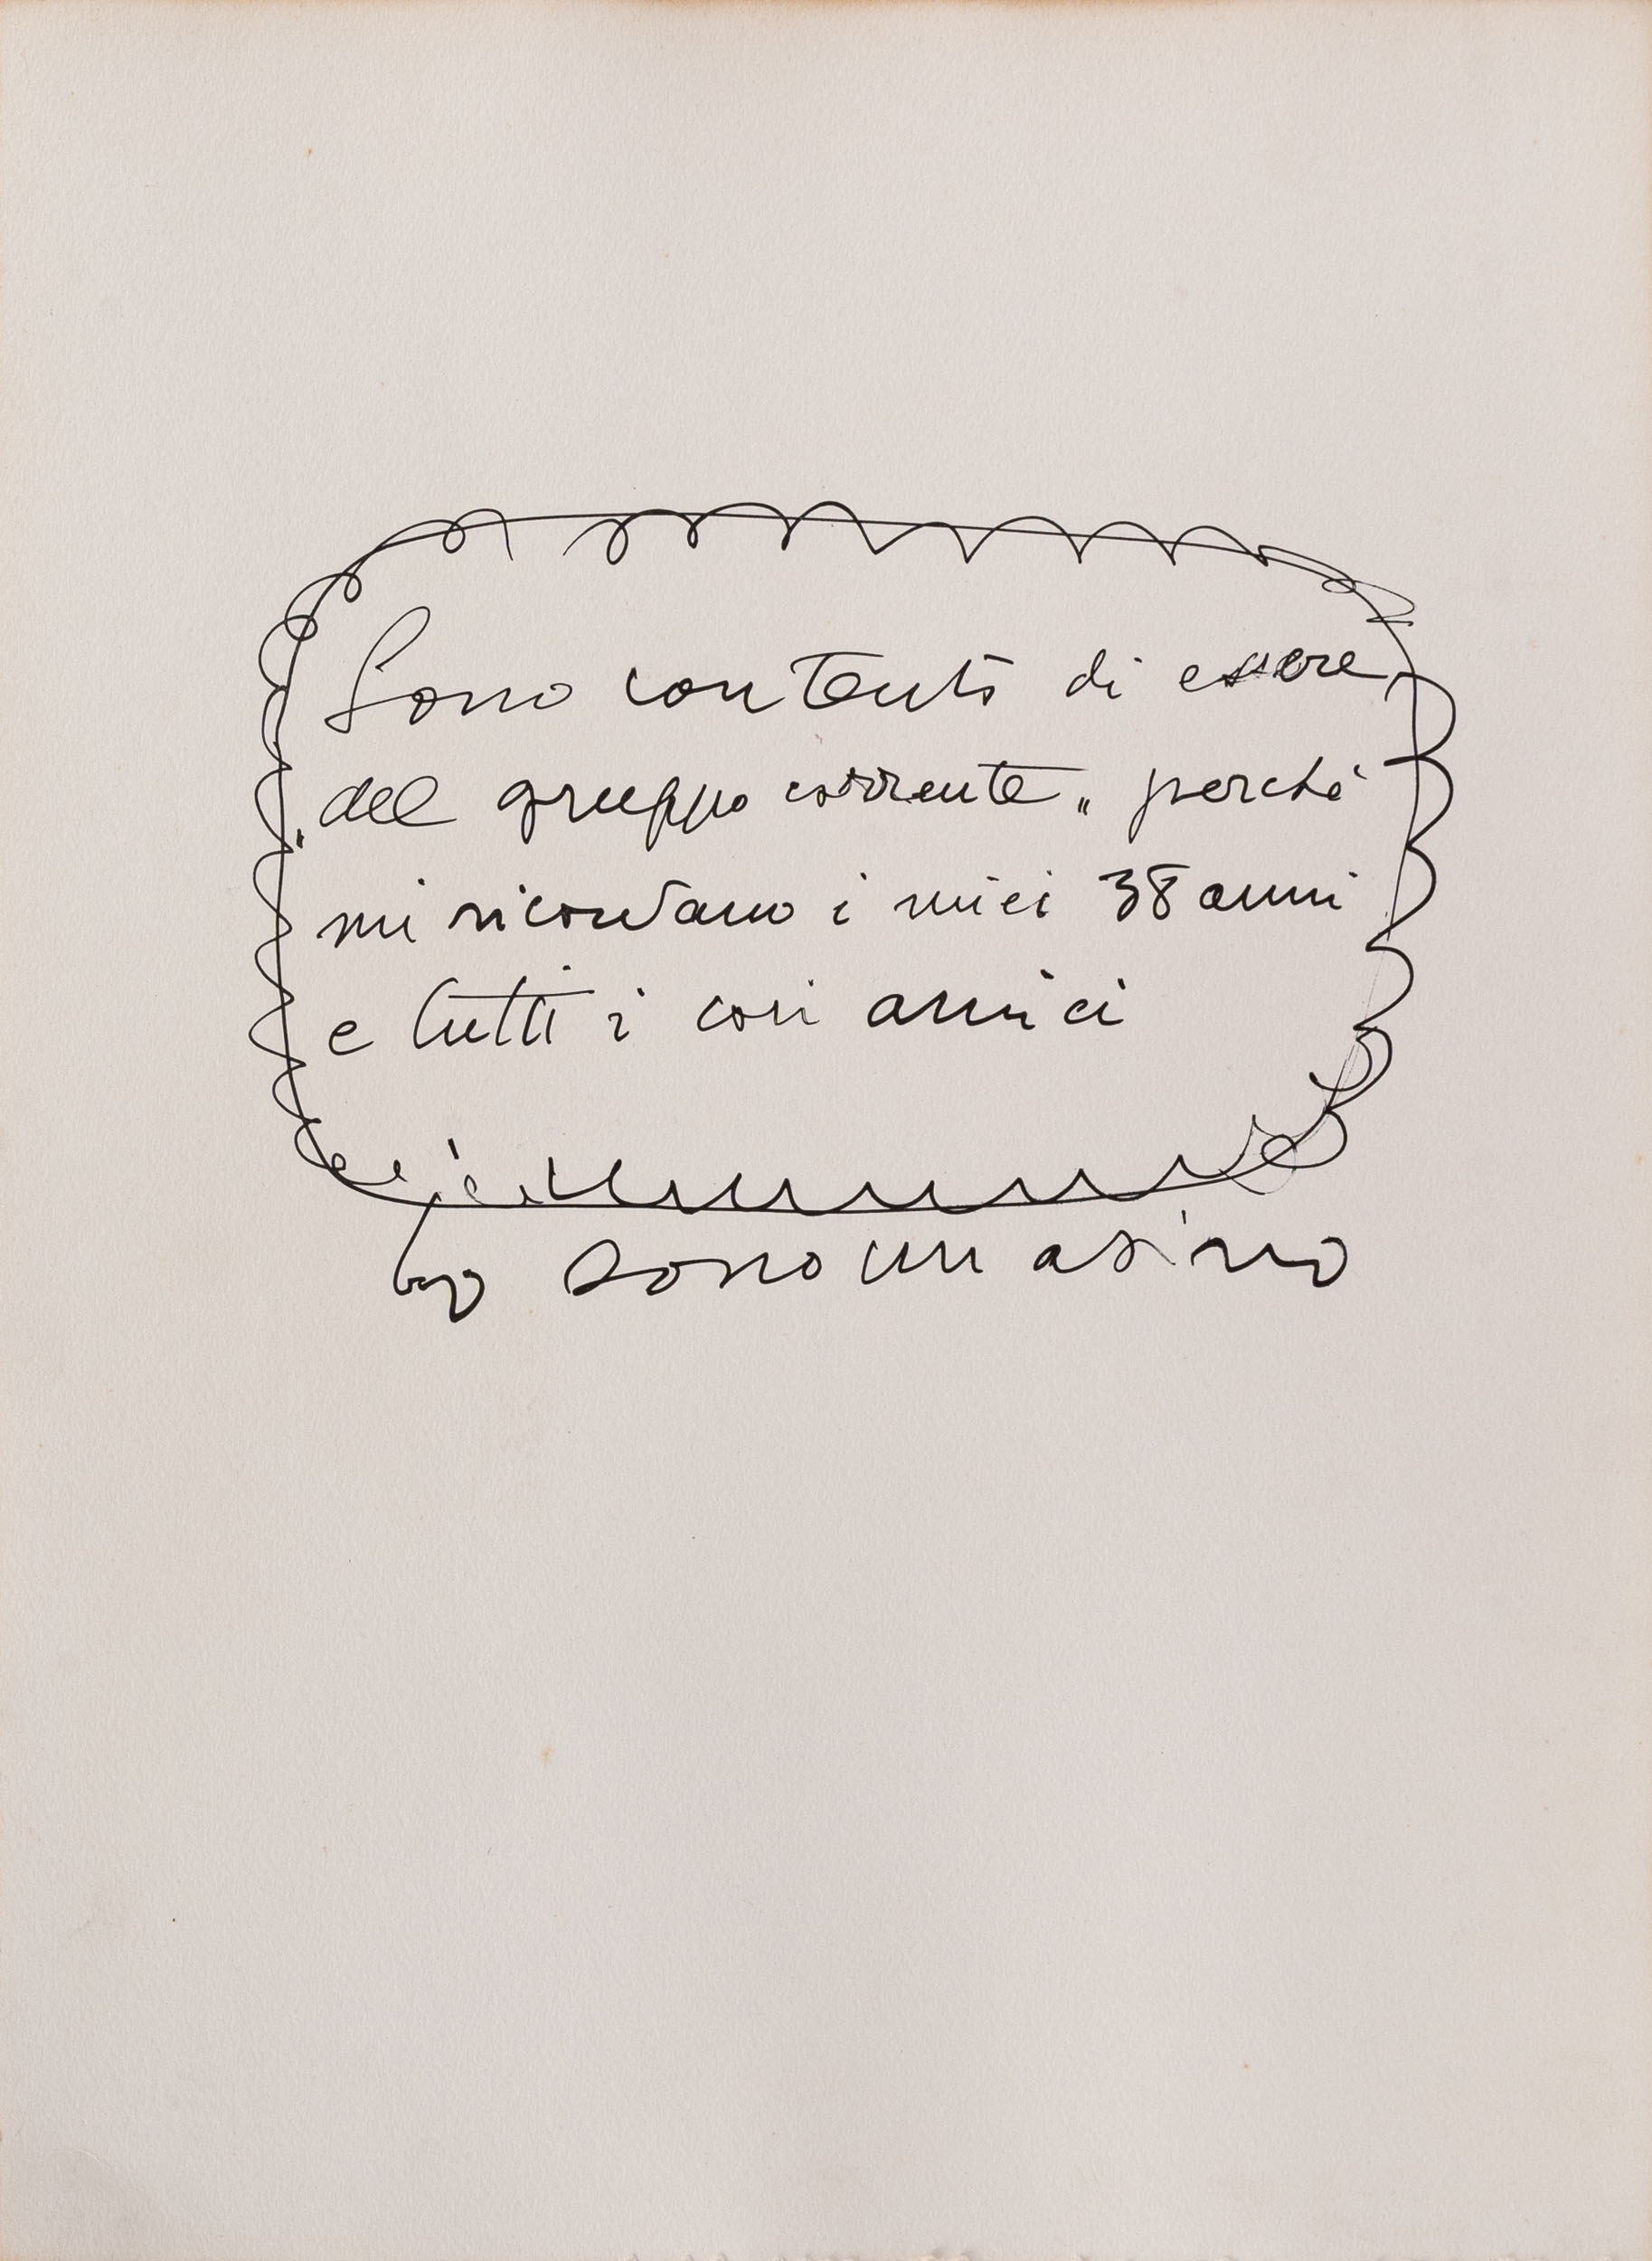 Sono contento di essere
„del gruppo corrente„ perché
mi ricordano i miei 38 anni
e tutti i cari amici
Io sono un asino